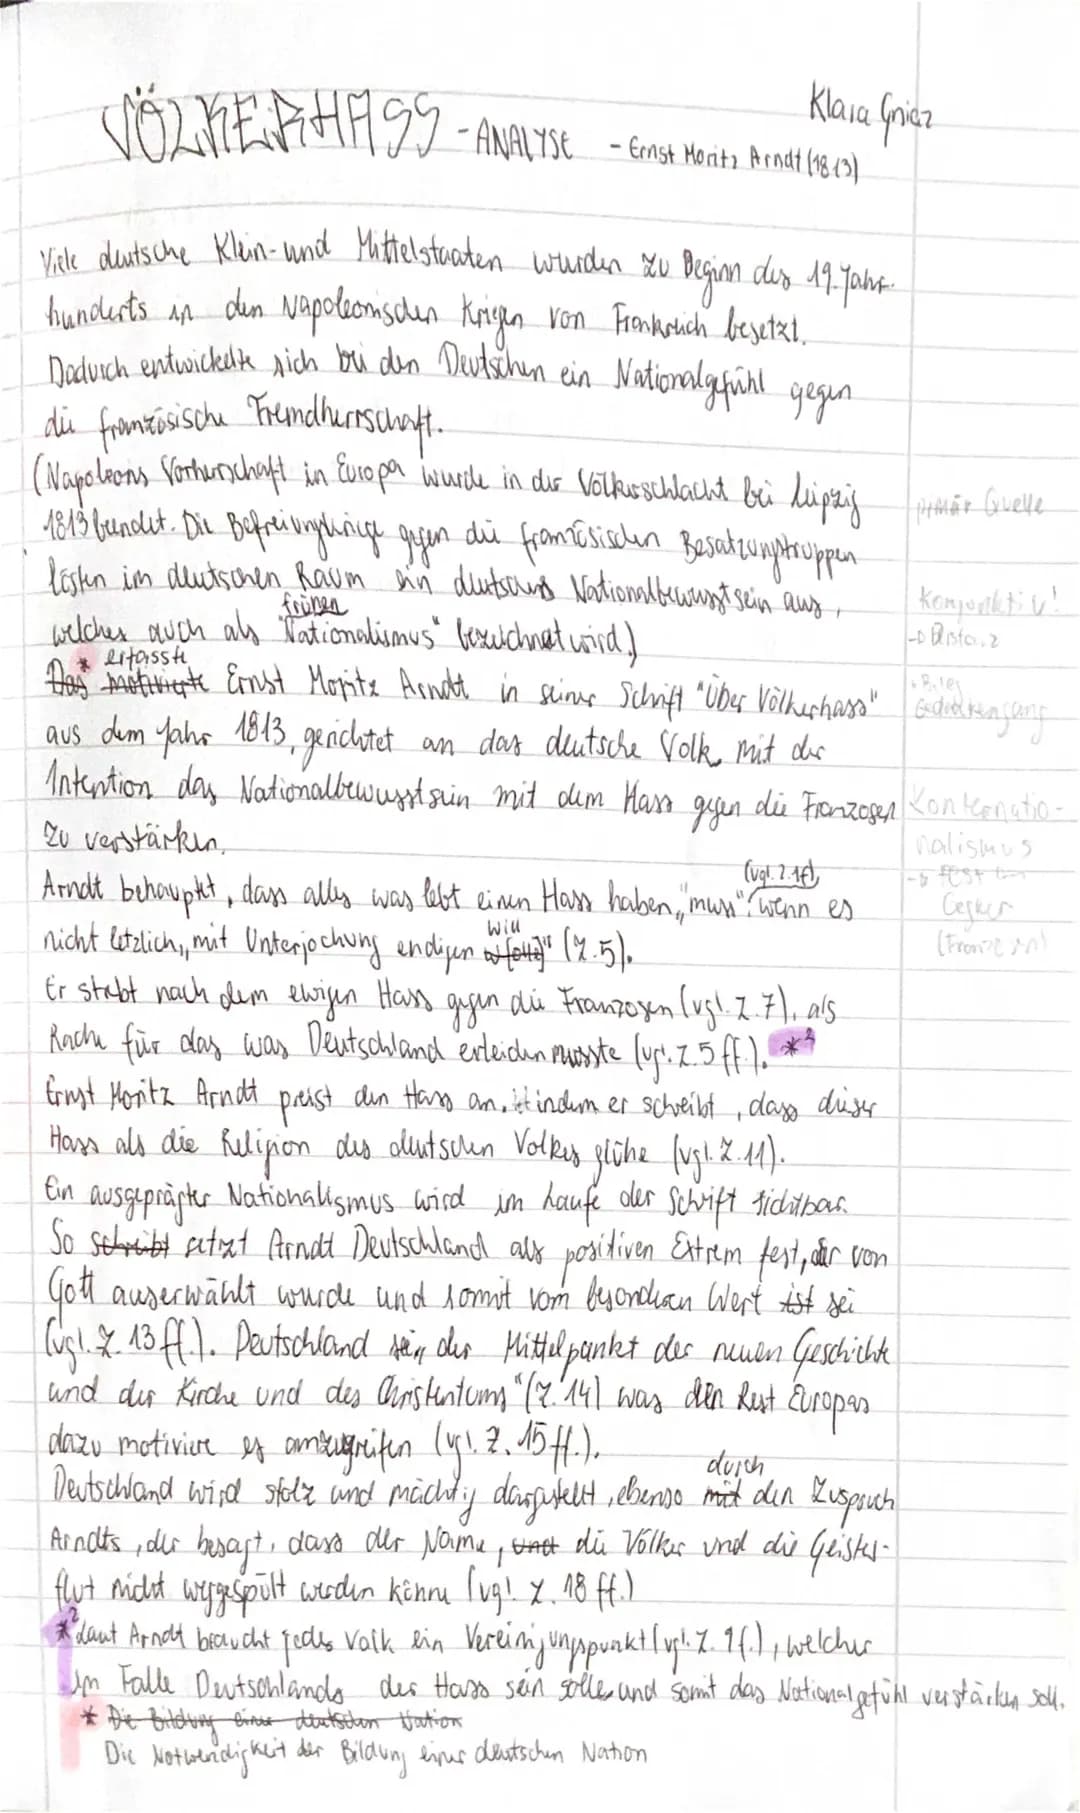 Klara Gniez
VÖLKERHASS - ANALYSE - Ernst Moritz Arndt (1813)
Viele deutsche Klein- und Mittelstaaten wurden zu Beginn des 19. Jahr-
hunderts in den Napoleonischen Kriegen von Frankreich besetzt.
Dadurch entwickelte sich bei den Deutschen ein Nationalgefühl gegen
die französische Fremdherrschaft.
(Napoleons Vorherschaft in Europa wurde in der Völkerschlacht bei Leipzig
primär Quelle
1813 beendet. Die Befreiungskriege gegen die französischen Besatzungstruppen
lösten im deutschen Raum ein deutsches Nationalbewusstsein aus,
Konjunktiv!
frühen
welches auch als "Nationalismus" bezeichnet wird.)
-> Distanz
* erfasste
Das motivierte Ernst Moritz Arndt in seiner Schrift "Über Völkerhass"
Gedankengang
aus dem Jahr 1813, gerichtet an das deutsche Volk, mit der
Intention das Nationalbewusstsein mit dem Hass gegen die Franzosen
zu verstärken.
nalismus
-> fest
(vgl. Z. 1f),
Arndt behauptet, dass alles was lebt einen Hass haben „muss", wenn es
will
nicht letzlich „mit Unterjochung endigen" (Z. 5).
Er strebt nach dem ewigen Hass gegen die Franzosen (vgl. Z. 7), als
Rache für das was Deutschland erleiden musste (vgl. Z. 5 ff.). *²
Ernst Moritz Arndt preist den Hass an, indem er schreibt, dass dieser
Hass als die Religion des deutschen Volkes glühe (vgl. Z. 11).
Ein ausgeprägter Nationalismus wird im Laufe der Schrift sichtbar.
So schreibt setzt Arndt Deutschland als positiven Extrem fest, der von
Gott auserwählt wurde und somit vom besonderen Wert ist sei
(vgl. Z. 13 ff.). Deutschland sei „der Mittelpunkt der neuen Geschichte
und der Kirche und des Christentums" (Z. 14) was den Rest Europas
dazu motiviere es anzugreifen (vgl. Z. 15 ff.).
durch
Deutschland wird stolz und mächtig dargestellt, ebenso mit den Zuspruch
Arndts, der besagt, dass der Name, und die Völker und die Geister-
flut nicht weggespült werden könne (vgl. Z. 18 ff.)
*² laut Arndt braucht jedes Volk ein Vereinigungspunkt (vgl. Z. 9f.), welcher
im Falle Deutschlands der Hass sein solle und somit das Nationalgefühl verstärken soll.
* Die Bildung einer deutschen Nation
Die Notwendigkeit der Bildung einer deutschen Nation